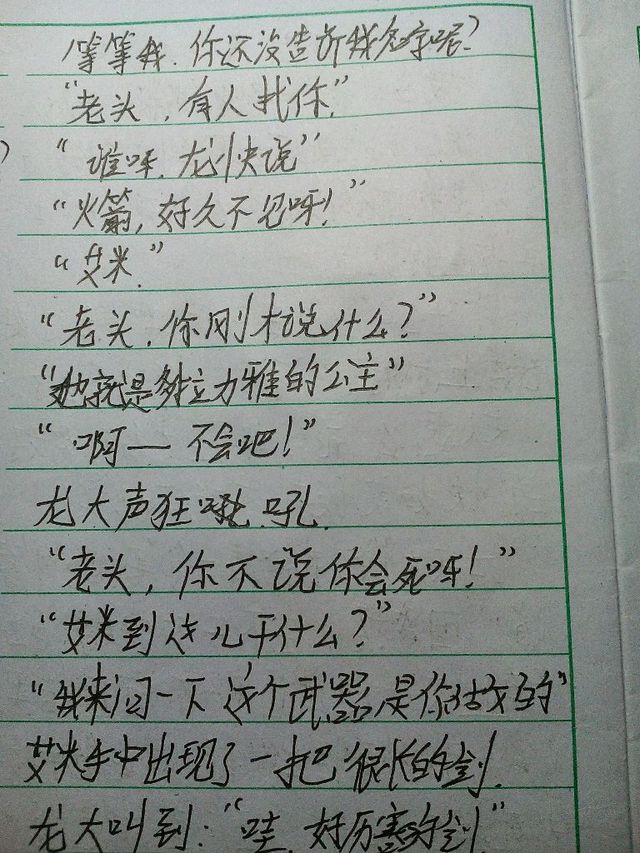 等等我，你还没告诉我名字呢？
“老头，有人找你”
“谁呀，龙小快说”
“火箭，好久不见呀！”
“艾米。”
“老头，你刚才说什么？”
“她就是多立力雅的公主”
“啊— 不会吧！”
龙大声狂吼吼.
“老头，你不说你会死呀！”
“艾米到这儿干什么？”
“我来问一下这个武器是你做的”
艾米手中出现了一把很长的剑.
龙大叫到：“哇，好厉害的剑”